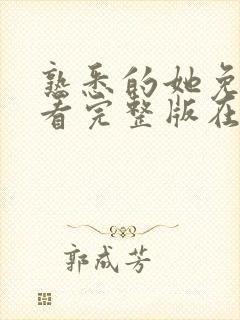 熟悉的她免
看完整版在
郭成芳